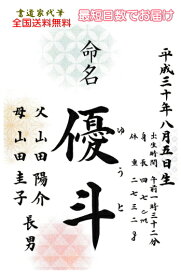 書道家代筆
全国送料無料
最短日数でお届け
平成三十年八月五日生
出生時間 午前一時三十二分
身長 四七センチ
体重 二七三二g
命名
優斗
ゆうと
父 山田陽介
母 山田圭子
長男